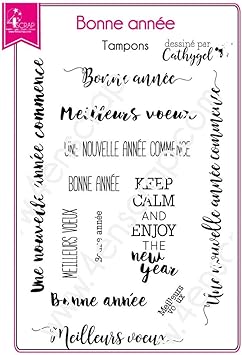 4enSCRAP
Bonne année
Tampons
dessiné par
Cathygel
Bonne année
Meilleurs voeux
UNE NOUVELLE ANNÉE COMMENCE
Une nouvelle année commence
Une nouvelle année commence
BONNE ANNÉE
MEILLEURS VOEUX
Bonne année
KEEP
CALM
AND
ENJOY
THE
new
year
Meilleurs
voeux
Bonne année
Meilleurs voeux